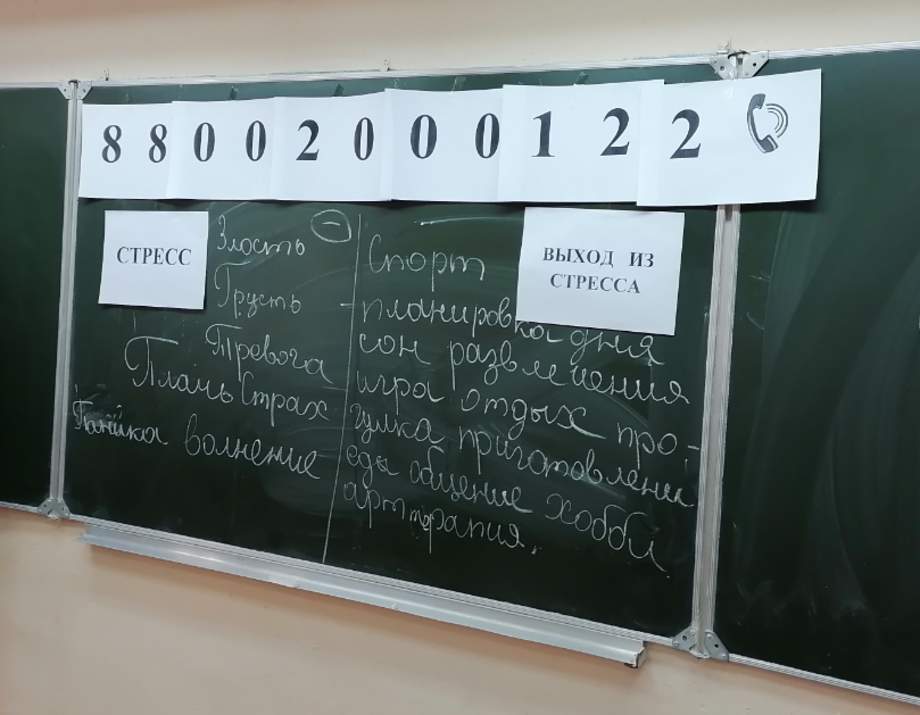 88002000122
СТРЕСС
Злость
Грусть
Тревога
Плачь Страх
Паника волнение
ВЫХОД ИЗ
СТРЕССА
Спорт
- планировка дня
сон развлечения
игра отдых про-
гулка приготовлени
еды общение хобби
арт терапия.